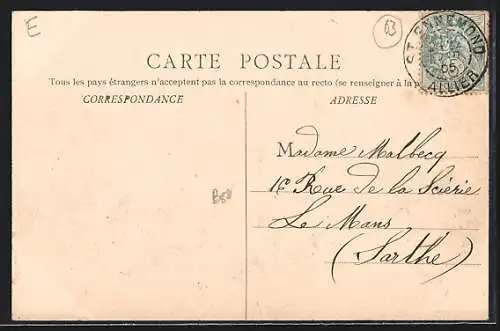 E
63
CARTE POSTALE
Tous les pays étrangers n'acceptent pas la correspondance au recto (se renseigner à la p
CORRESPONDANCE
ADRESSE
ST ENNEMOND
05
ALLIER
Madame Malbecq
Rue de la Scierie
Le Mans
(Sarthe)